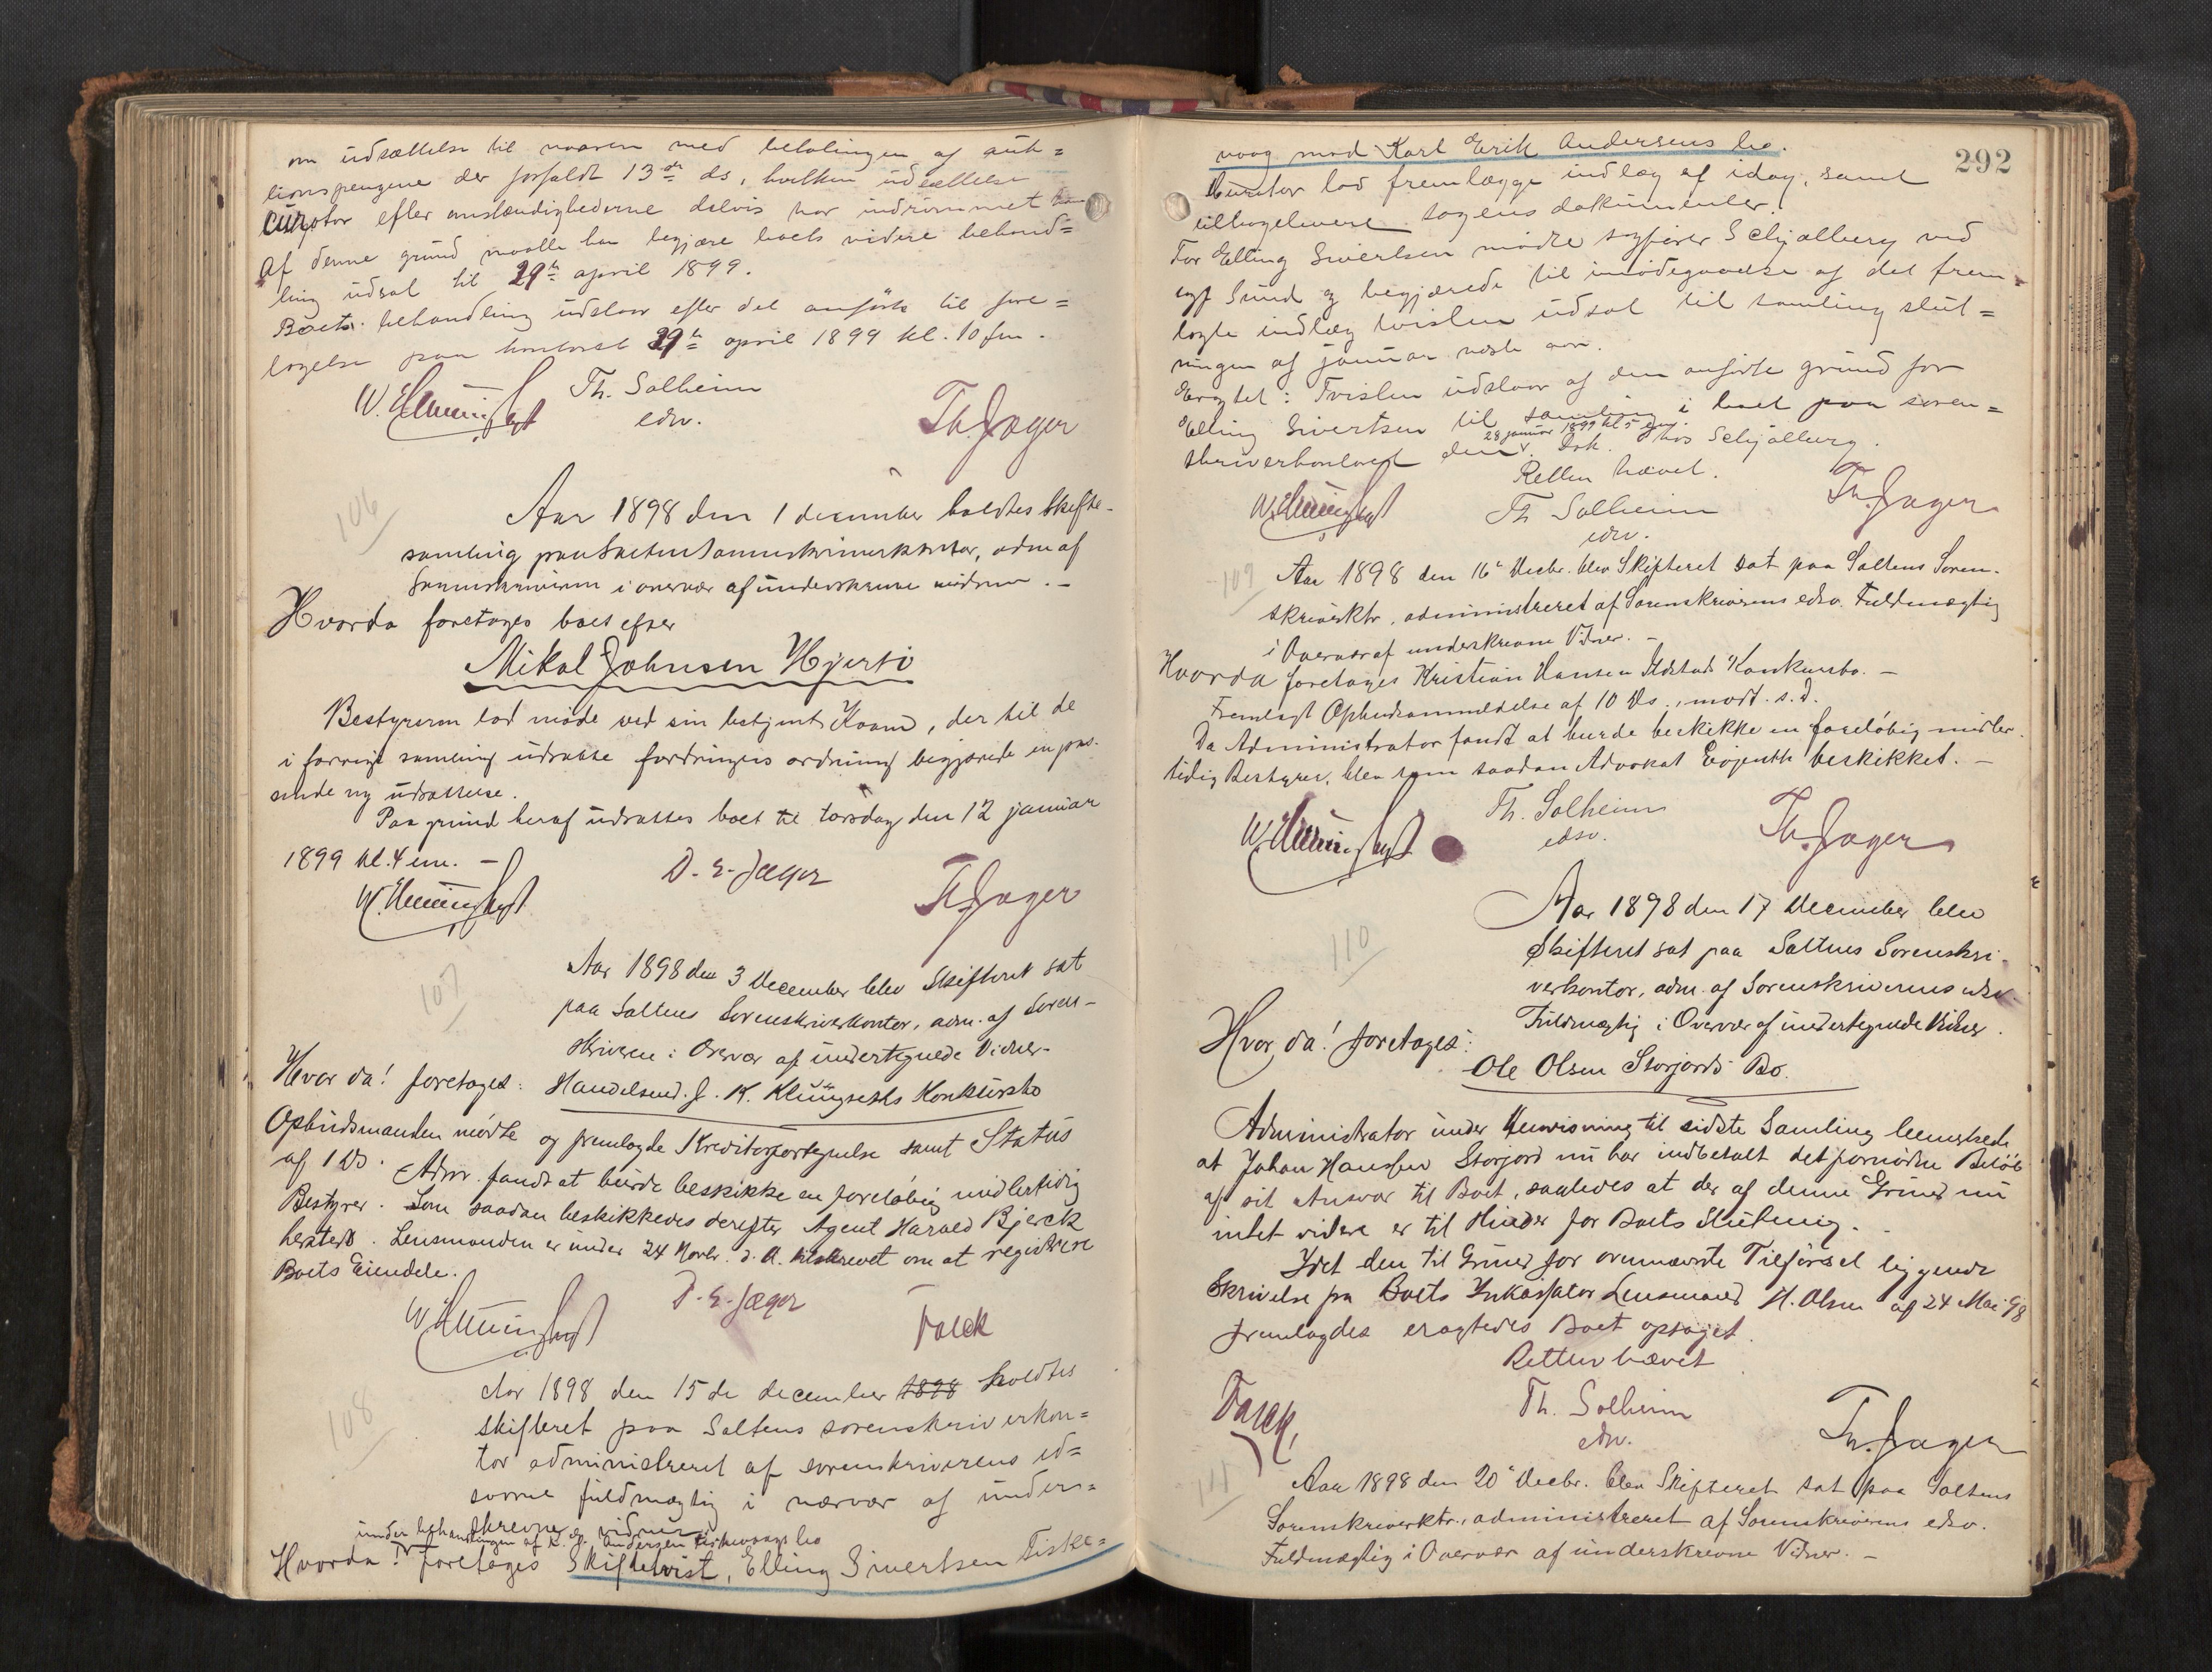 om udsættelse til vaaren med betalingen af auk=
tionspengene der forfaldt 13de ds, hvilken udsættelse
curator efter omstændighederne delvis har indrømmet
Af denne grund maatte han begjære boets videre behand=
ling udsat til 29de april 1899.
Boets behandling udstaar efter det anførte til fore=
tagelse paa kontoret 29de april 1899 kl. 10 fm.
Th. Solheim
edsv.
Th. Jager
106
Aar 1898 den 1 december holdtes Skifte-
samling paa Saltens sorenskriverkontor, adm af
Sorenskriveren i overvær af underskrevne vidner. -
Hvorda foretoges boet efter
Mikal Johnsen Hjertø
Bestyreren lod møde ved sin betjent Koand, der til de
i forrige samling udsatte fordringers ordning begjærede en pas-
sende ny udsættelse.
Paa grund heraf udsattes boet til torsdag den 12 januar
1899 kl. 4 em. -
D. E. Jæger
Th. Jager
107
Aar 1898 den 3 December blev Skifteret sat
paa Saltens Sorenskriverkontor, adm. af Soren-
skriveren i Overvær af undertegnede Vidner-
Hvor da! foretoges: Handelsmd. J. K. Klüngseths Konkursbo
Opbudsmanden mødte og fremlagde Kreditorfortegnelse samt Status
af 1 ds. Adm. fandt at burde beskikke en foreløbig midlertidig
Bestyrer. Som saadan beskikkedes derefter Agent Harald Bjerck
hersteds. Lensmanden er under 24 Novbr. d. A. tilskrevet om at registrere
Boets Eiendele.
D. E. Jæger
Falck
108
Aar 1898 den 15de december 1898 holdtes
skifteret paa Saltens sorenskriverkon=
tor administreret af sorenskriverens ed=
svorne fuldmægtig i nærvær af unders=
skrevne vidner
under behandlingen af K. E. Andersen Fiskevaags bo
Hvorda! foretoges Skiftetvist, Elling Sivertsen Fiske=
292
vaag mod Karl Erik Andersens bo.
Curator lod fremlægge indlæg af idag, samt
tilbagelevere sagens dokumenter.
For Elling Sivertsen mødte sagfører Schjølberg ved
sgf Sund og begjærede til imødegaaelse af det frem=
lagte indlæg tvisten udsat til samling slut=
ningen af januar næste aar.
Eragtet: Tvisten udstaar af den anførte grund for
Elling Sivertsen til samling i boet paa soren=
28 januar 1899 kl 5 em.
skriverkontoret den Dok. hos Schjølberg.
Retten hævet.
Th Solheim
edsv.
Th. Jager
109
Aar 1898 den 16de Decbr. blev Skifteret sat paa Saltens Soren-
skriverktr, administreret af Sorenskriverens edsv. Fuldmægtig
i Overvær af underskrevne Vidner. -
Hvorda foretoges Kristian Hansen Ildstads Konkursbo. -
Fremlagt Opbudsanmeldelse af 10 ds., modt. s. d.
Da Administrator fandt at burde beskikke en foreløbig midler-
tidig Bestyrer, blev som saadan Advokat Evjenth beskikket. -
Th. Solheim
edsv.
Th. Jager
110
Aar 1898 den 17 December blev
Skifteret sat paa Saltens Sorenskri-
verkontor, adm. af Sorenskriverens edsv
Fuldmægtig i Overvær af undertegnede Vidner.
Hvor da! foretoges:
Ole Olsen Storjords Bo.
Administrator under Henvisning til sidste Samling bemerkede
at Johan Hansen Storjord nu har indbetalt det fornødne Beløb
af sit Ansvar til Boet, saaledes at der af denne Grund nu
intet videre er til Hinder for Boets Slutning.
Idet den til Grund for ovennævnte Tilførsel liggende
Skrivelse fra Boets Inkassator Lensmand H. Olsen af 24 Mai 98
fremlagdes eragtedes Boet optaget.
Retten hævet
Falck,
Th. Solheim
edsv.
Th. Jager
111
Aar 1898 den 20de Decbr. blev Skifteret sat paa Saltens
Sorenskriverktr., administreret af Sorenskriverens edsv.
Fuldmægtig i Overvær af underskrevne Vidner. -